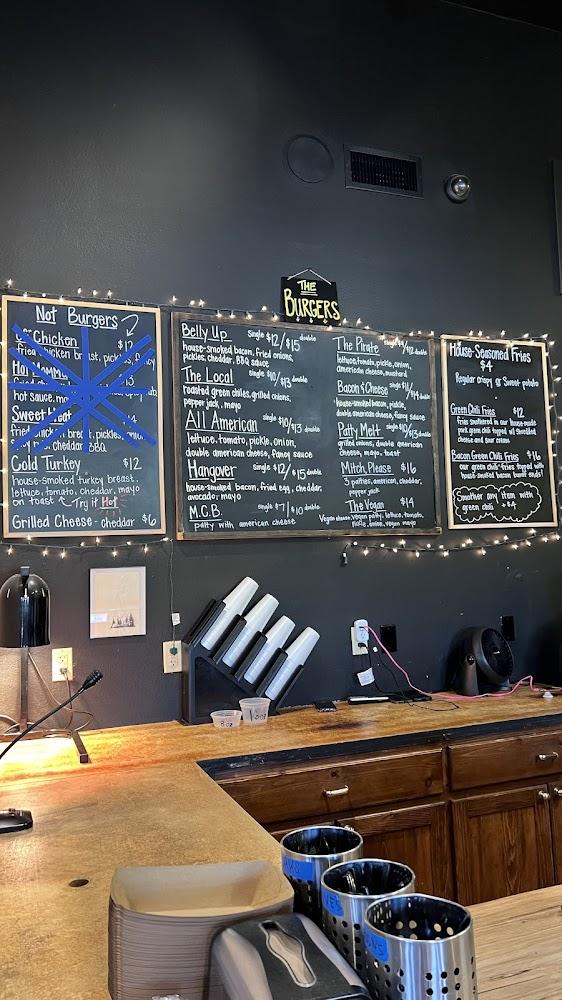 THE
BURGERS
Not Burgers
Chicken
fried chicken breast, pickles,
hot sauce, mayo
Sweet Heat
fried chicken breast, pickles,
cheddar, BBQ
Cold Turkey $12
house-smoked turkey breast,
lettuce, tomato, cheddar, mayo
on toast Try it Hot
Grilled Cheese - cheddar $6
Belly Up Single $12/$15 double
house-smoked bacon, fried onions,
pickles, cheddar, BBQ sauce
The Local single $10/$13 double
roasted green chiles, grilled onions,
pepper jack, mayo
All American single $10/$13 double
lettuce, tomato, pickle, onion,
double american cheese, fancy sauce
Hangover single $12/$15 double
house-smoked bacon, fried egg, cheddar,
avocado, mayo
M.C.B. single $7/$10 double
patty with american cheese
The Pirate single double
lettuce, tomato, pickle, onion,
american cheese, mustard
Bacon & Cheese single $11/$14 double
house-smoked bacon, pickle,
double american cheese, fancy sauce
Patty Melt single double
grilled onions, double american
cheese, mayo, toast
Mitch, Please $16
3 patties, american, cheddar,
pepper jack
The Vegan $14
Vegan cheese, vegan patty, lettuce, tomato,
pickle, onion, vegan mayo
House-Seasoned Fries
$4
Regular crispy or Sweet potato
Green Chili Fries $12
fries smothered in our house-made
pork green chili topped w/ shredded
cheese and sour cream
Bacon Green Chili Fries $16
our green chili fries topped with
house-smoked bacon burnt ends!
Smother any item with
green chili + $4
8 oz